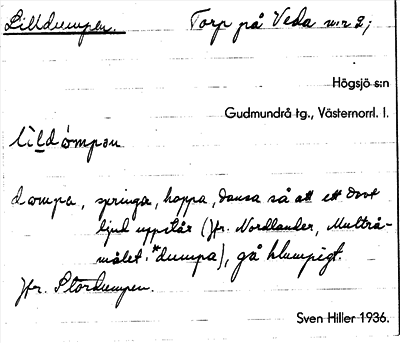 Lilldumpen. Torp på Veda n:r 2;
Högsjö s:n
Gudmundrå tg., Västernorrl. l.
dompa, springa, hoppa, dansa så att ett dovt
ljud uppstår (Jfr. Nordlander, Multrå-
målet: *dumpa), gå klumpigt.
Jfr. Stordumpen.
Sven Hiller 1936.